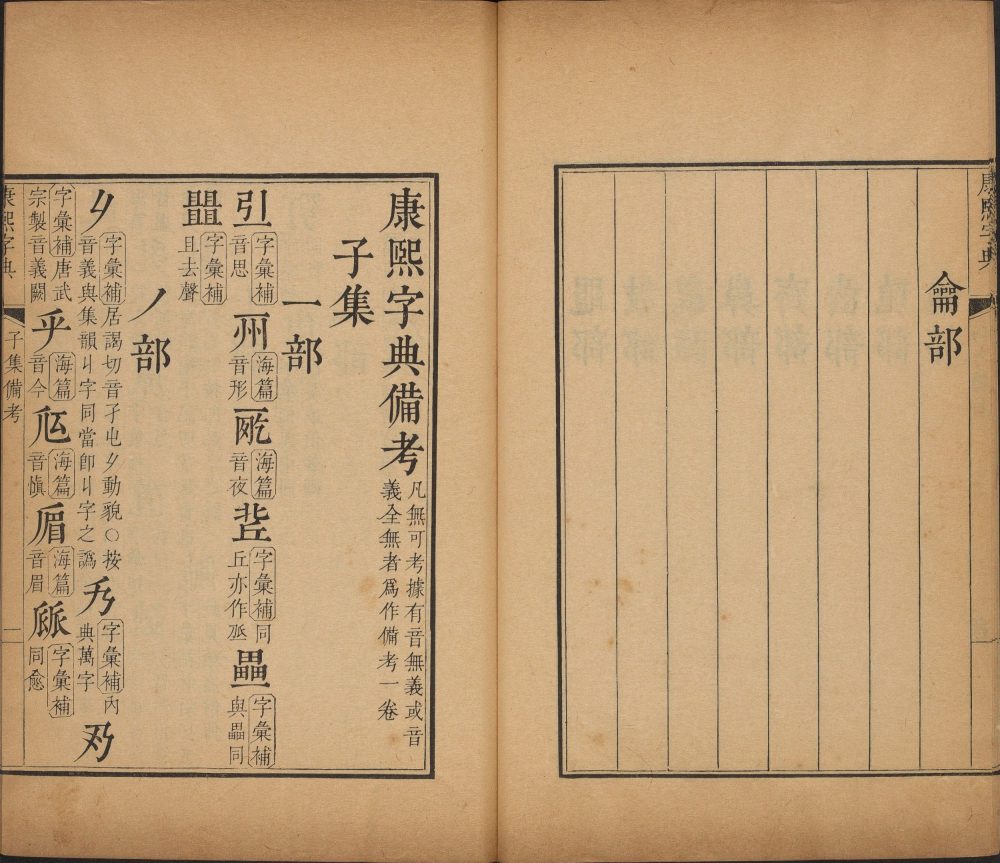 康熙字典
龠部
康熙字典備考 凡無可考據有音無義或音
義全無者爲作備考一卷
子集
一部
字彙補 音思 海篇 音形 海篇 音夜 字彙補同 丘亦作 字彙補 與畾同
字彙補 且去聲
丿部
字彙補居謁切音孑 動貌○按
音義與集韻 字同當卽 字之譌 字彙補內
典萬字
字彙補唐武
宗製音義闕 乎 海篇 音今 海篇 音愼 海篇 音眉 字彙補 同愈
康熙字典 子集備考 一